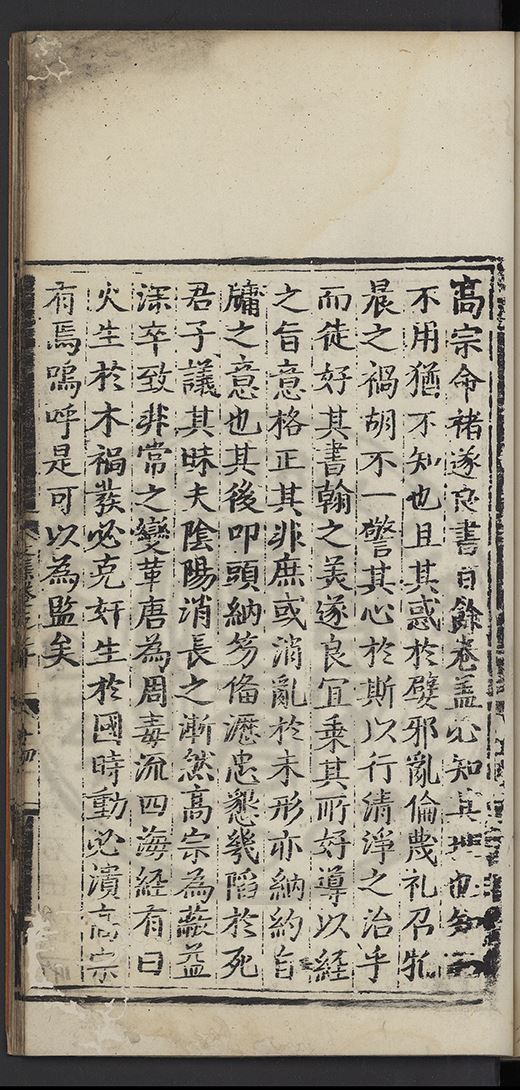 高宗命褚遂良書百餘卷盖必知其非也知而
不用猶不知也且其惑於嬖邪亂倫㒻礼召牝
晨之禍胡不一警其心於斯以行清淨之治乎
而徒好其書翰之羙遂良宜乗其所好導以経
之旨意格正其非庶或消亂於未形亦納約自
牖之意也其後叩頭納笏俻瀝忠懇㡬陷於死
君子議其昧夫陰陽消長之漸然高宗為蔽益
深卒致非常之變革唐為周毒流四海経有曰
火生於木禍𤼵必克奸生於國時動必潰高宗
有焉嗚呼是可以為監矣